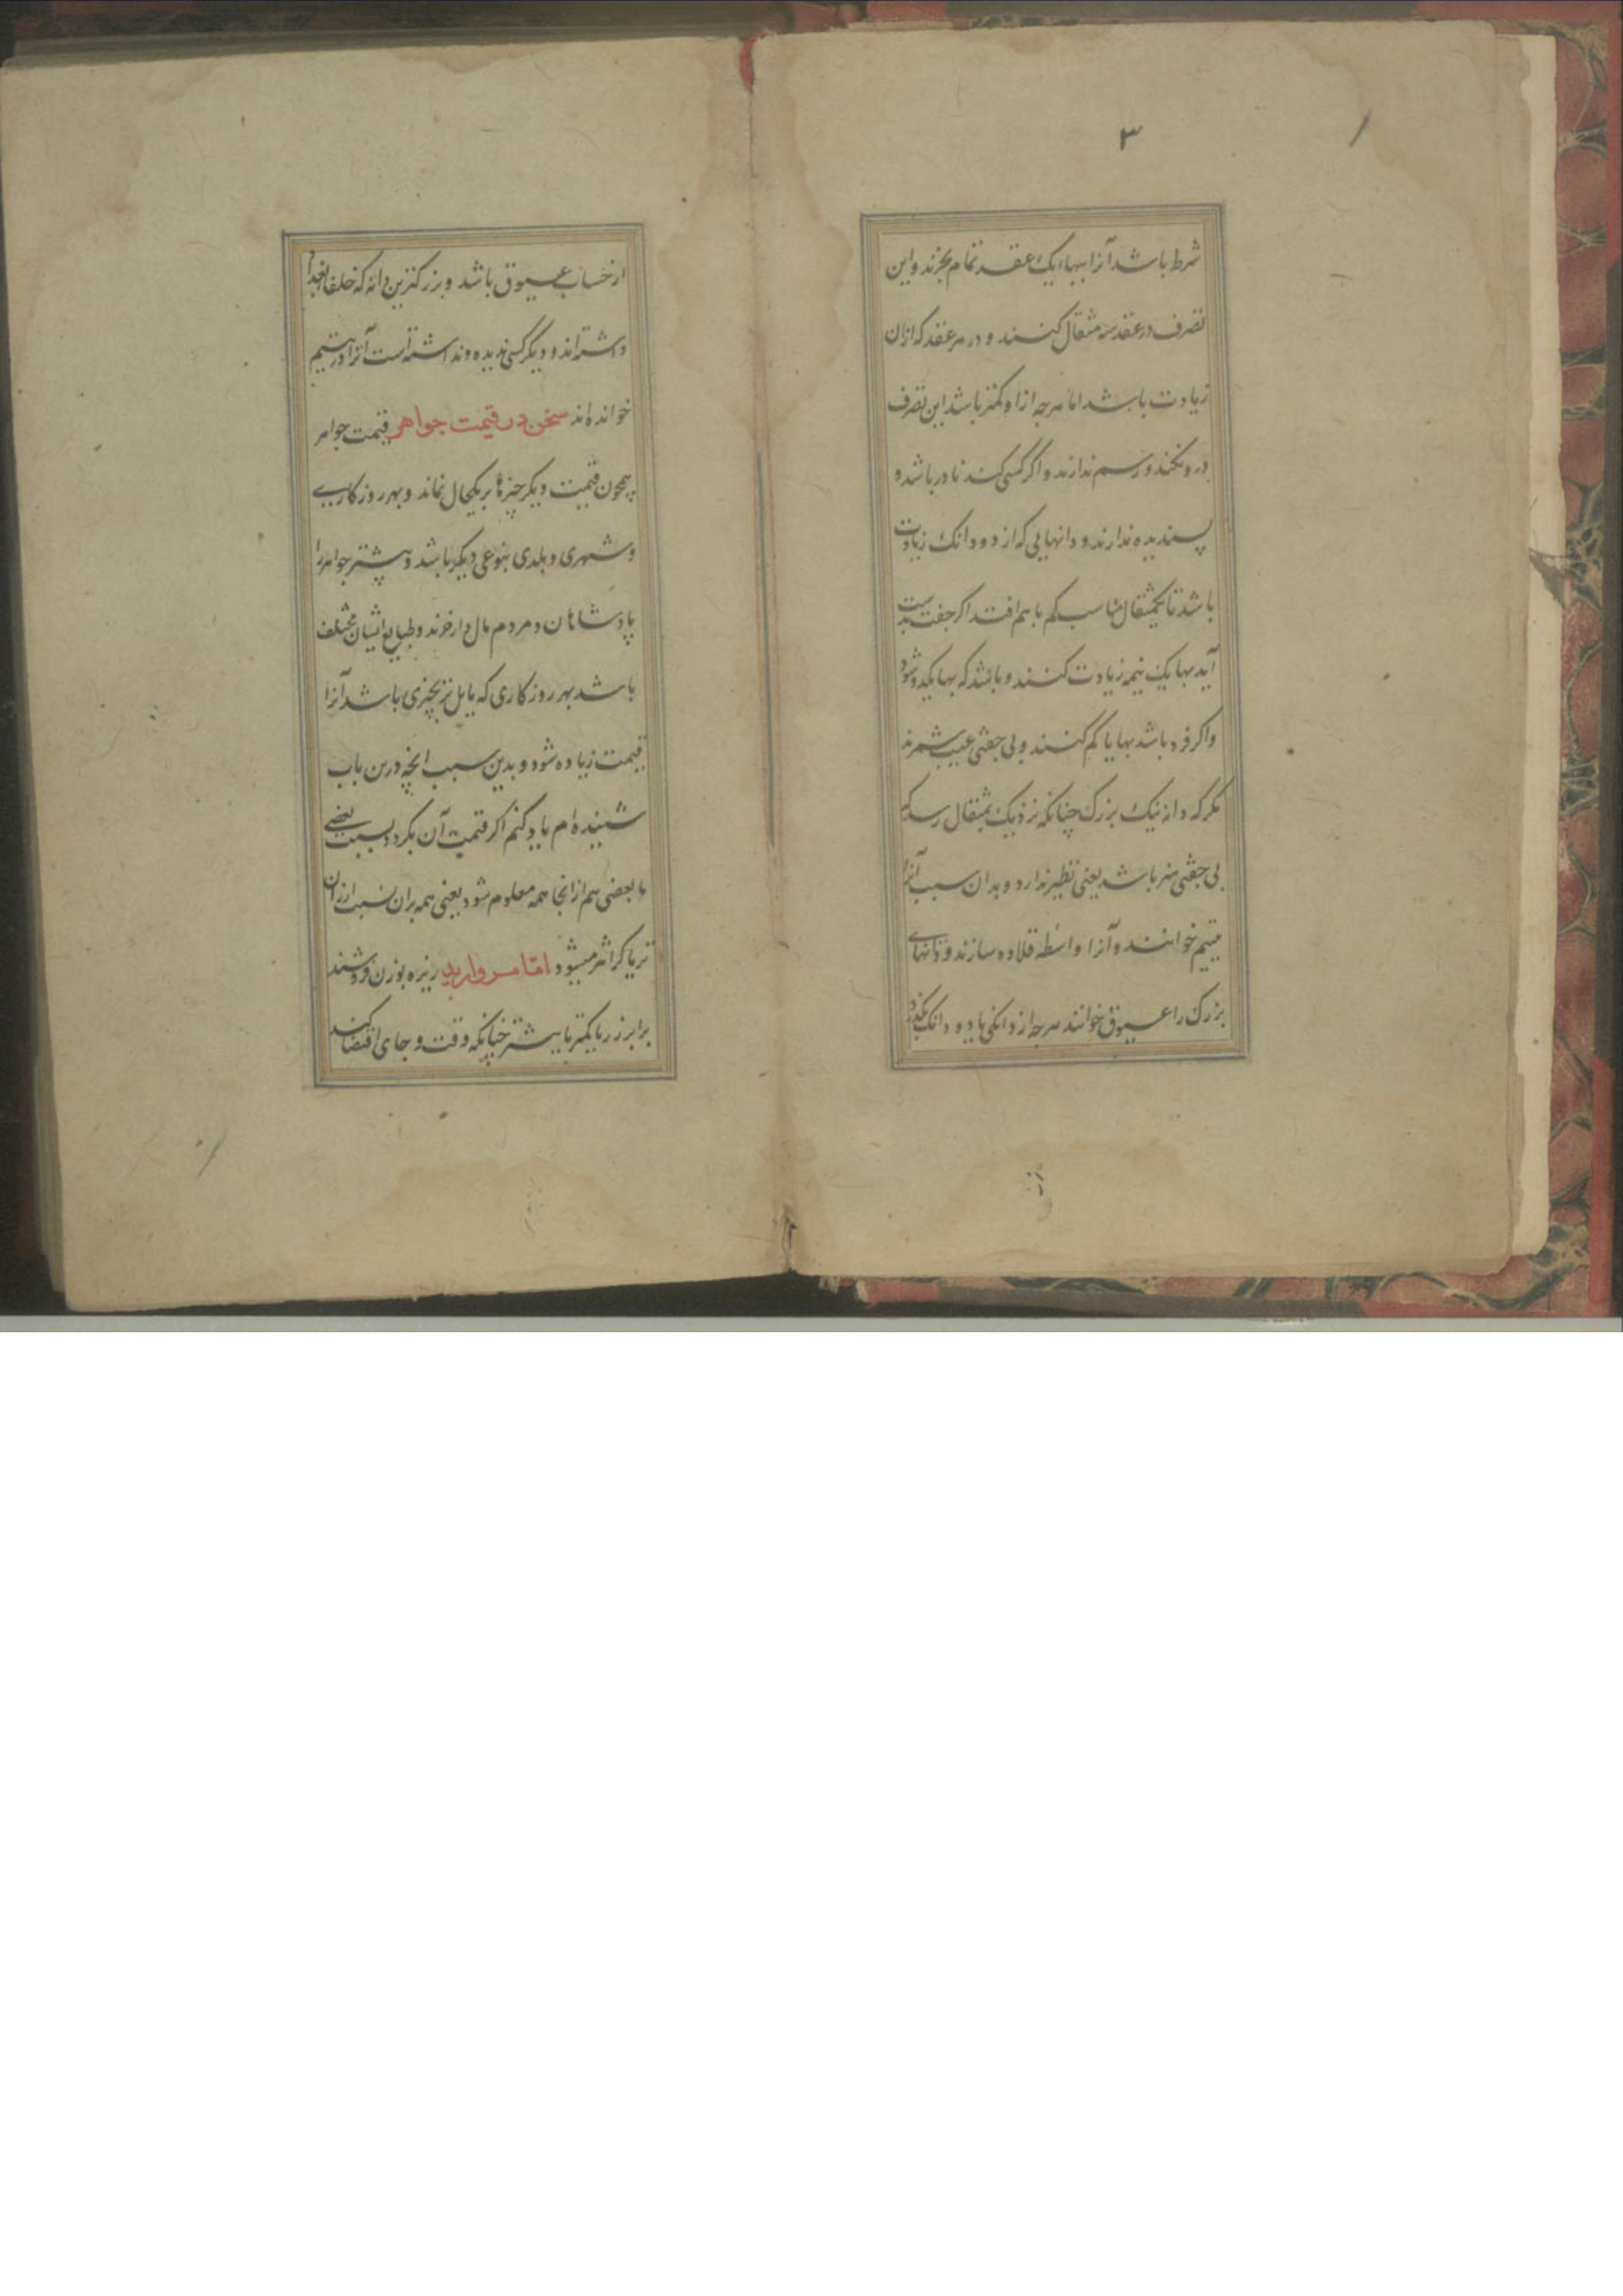 ۳
شرط باشد آنرا ببهاء یک عقد تمام بخرند و این
تصرف در عقد سه مثقال کنند و در هر عقد که ازان
زیادت باشد اما هرچه ازا و کمتر باشد این تصرف
درو نکنند و رسم ندارند و اگر کسی کند نادر باشد و
پسندیده ندارند و دانهایی که از دو دانک زیادت
باشد تا یکمثقال مناسب کم باهم افتد اگر جفت بدست
آید بها یک نیمه زیادت کنند و باشد که بها یکی دو شود
و اگر فرد باشد بها یا کم کنند و بی جفتی عیب شمرند
مگر که دانه نیک بزرک چنانکه نزدیک بمثقال رسد که
بی جفتی هنر باشد یعنی نظیر ندارد و بدان سبب آنرا
یتیم خوانند و آنرا واسطه قلاده سازند و دانهای
بزرک را عیوق خوانند هرچه از دانکی یا دو دانک بگذرد
از حساب عیوق باشد و بزرکترین دانه که خلفا بغداد
داشته‌اند و دیگر کسی ندیده و نداشته است آنرا در یتیم
خوانده‌اند سخن در قیمت جواهر قیمت جواهر
همچون قیمت دیگر چیزها بر یکحال نماند و بهر روزکاری
و شهری و بلدی بنوعی دیگر باشد و بیشتر جواهر را
پادشاهان و مردم مال دار خرند و طبایع ایشان مختلف
باشد بهر روزکاری که مایل تر بچیزی باشد آنرا
قیمت زیاده شود و بدین سبب انچه درین باب
شنیده‌ام یاد کنم اگر قیمت آن بگردد بسبب بعضی
با بعضی هم ازانجا همه معلوم شود یعنی همه بران نسبت ارزان
تر یا گرانتر میشود اما مروارید ریزه بوزن فروشند
برابر زر یا کمتر یا بیشتر چنانکه وقت و جای اقتضا کند